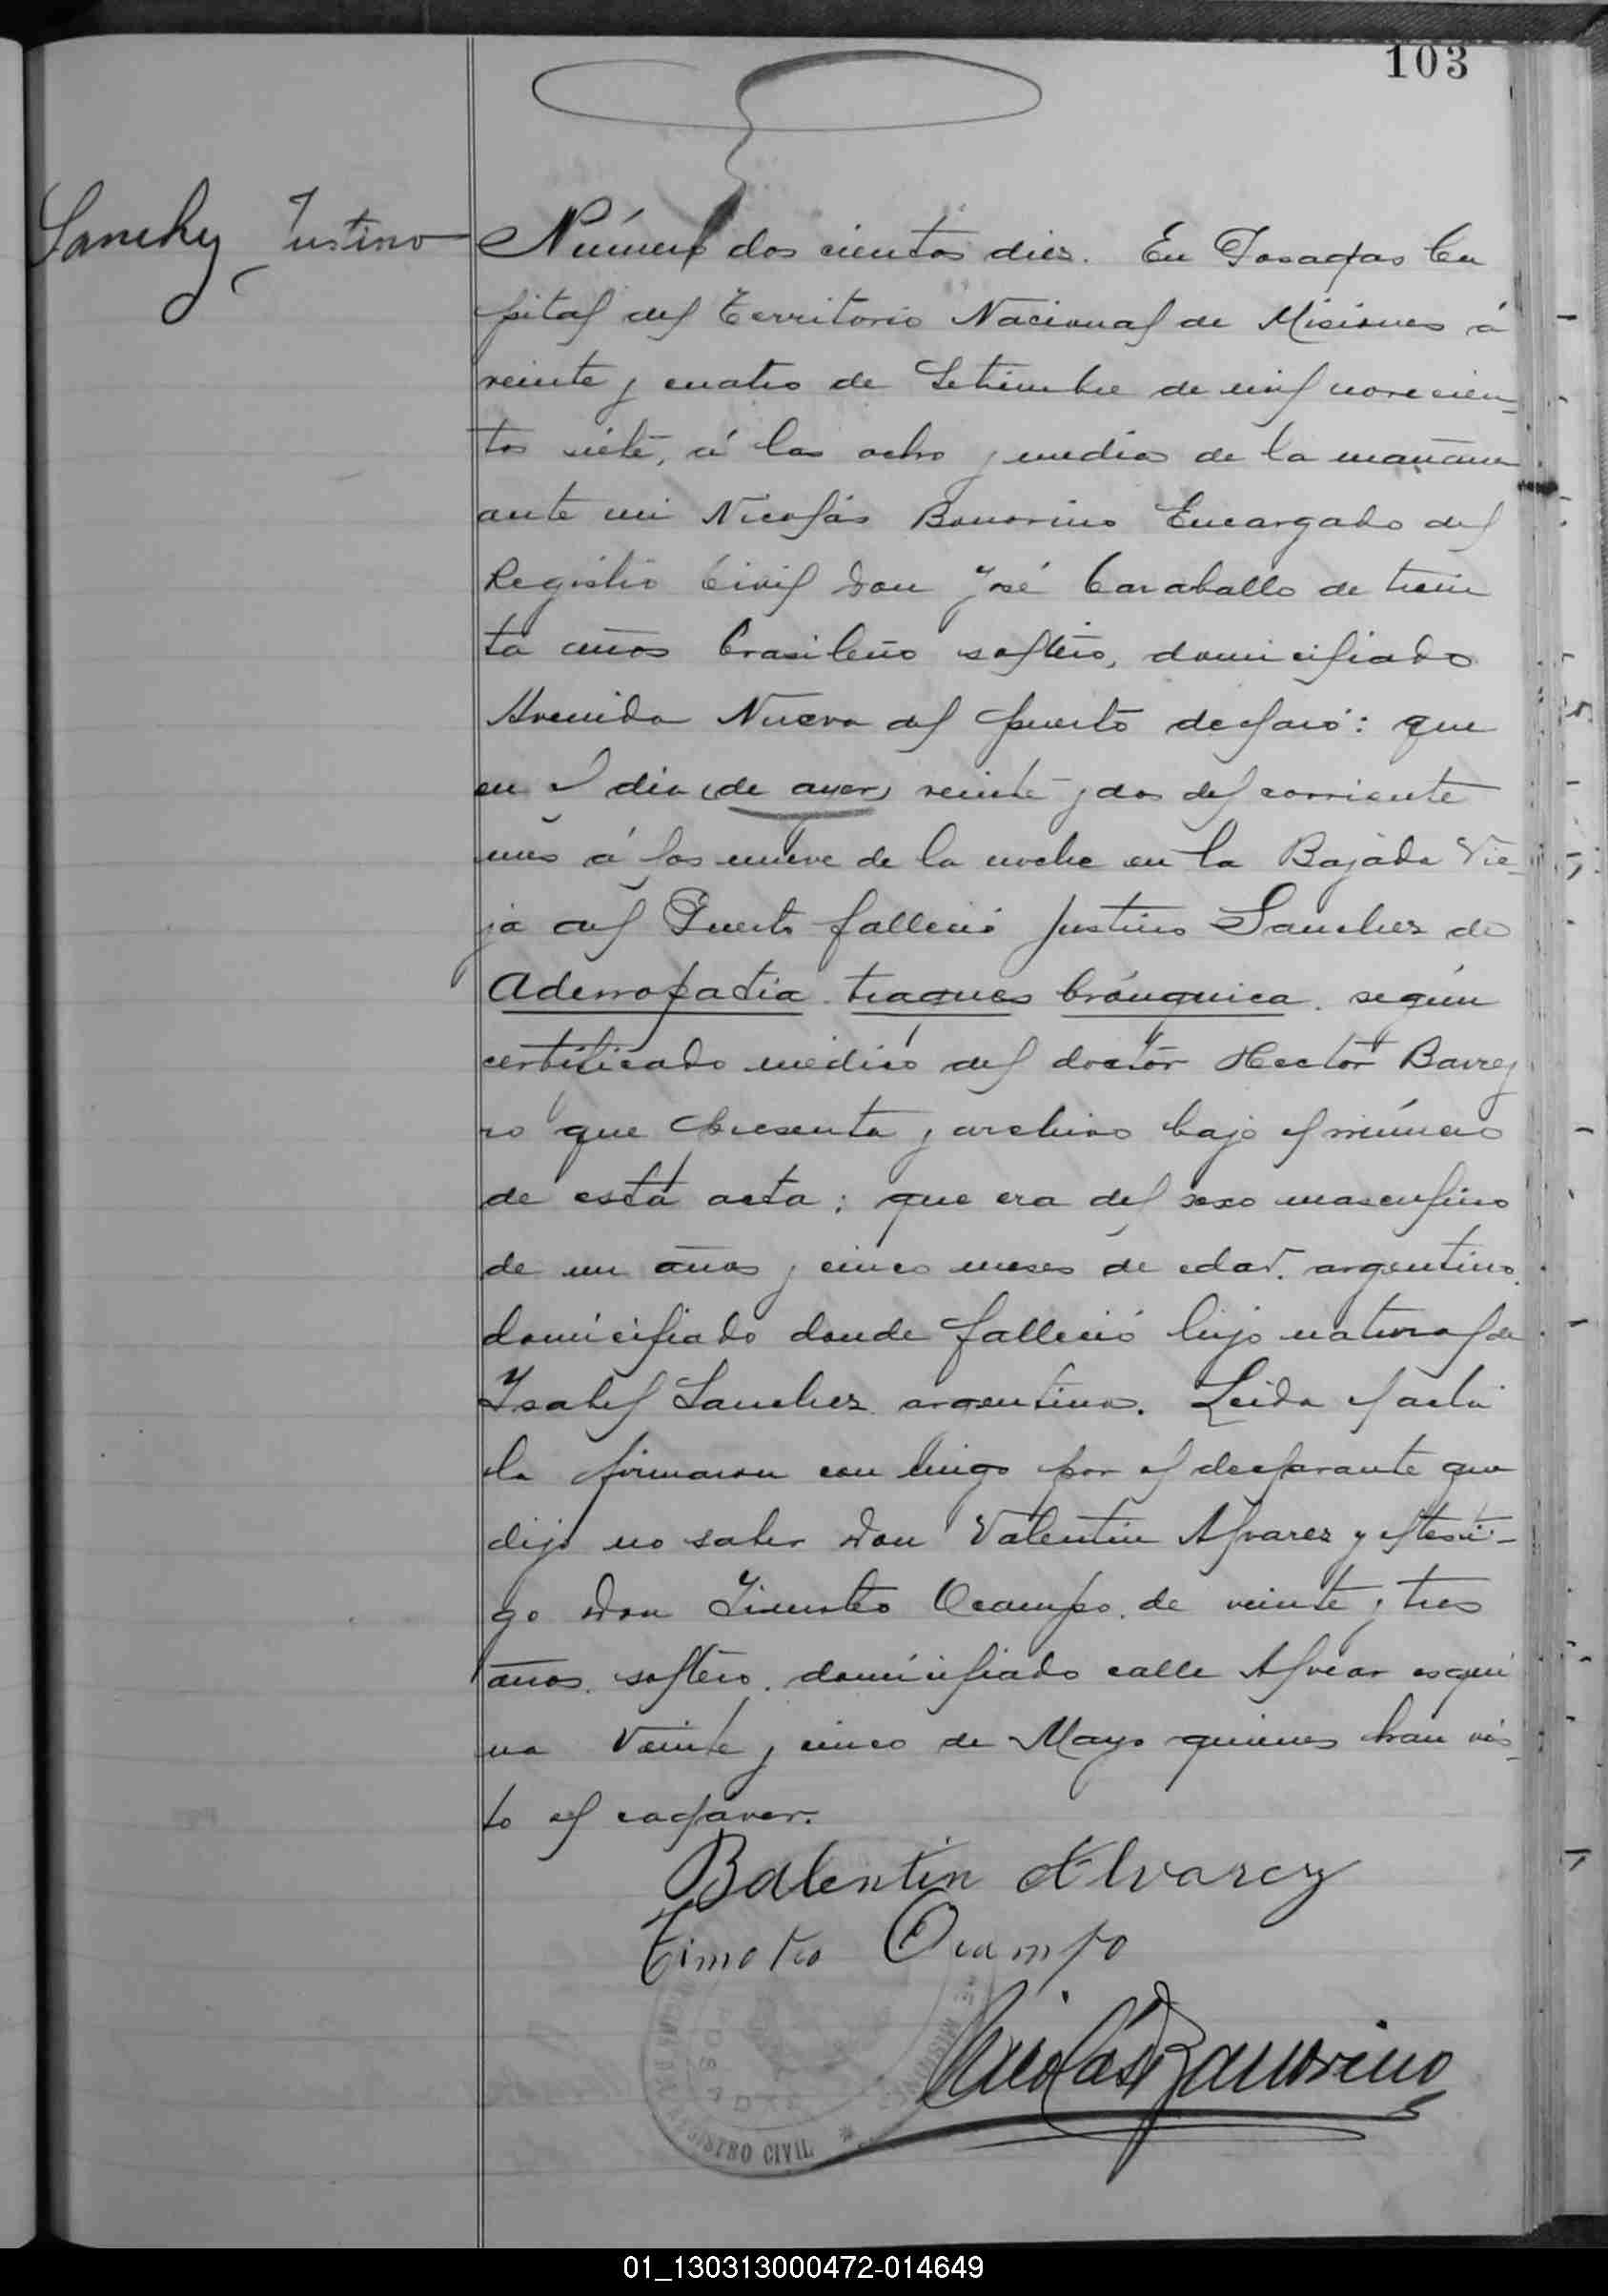 103
Sanchez Justino
Número dos cientos diez. En Posadas Ca
pital del Territorio Nacional de Misiones á
veinte y cuatro de Setiembre de mil novecien-
tos siete, á las ocho y media de la mañana
ante mi Nicolás Bonorino Encargado del
Registro Civil Don José Caraballo de trein
ta años brasileño soltero, domiciliado
Avenida Nueva del puerto declaró: que
en el dia (de ayer) veinte y dos del corriente
mes á las nueve de la noche en la Bajada Vie-
ja del Puerto falleció Justino Sanchez de
Adenopatia traqueo brónquica. según
certificado médico del doctor Hector Barrey
ro que presenta y archivo bajo el número
de esta acta; que era del sexo masculino
de un años y cinco meses de edad. argentino.
domiciliado donde falleció hijo natural de
Ysabel Sanchez argentina. Leida el acta
la firmaron con migo por el declarante que
dijo no saber Don Valentin Alvarez y el testi-
go Don Timoteo Ocampo. de veinte y tres
años. soltero. domiciliado calle Alvear esqui
na Veinte y cinco de Mayo quienes han vis-
to el cadaver.
Balentin Alvarez
Timoteo Ocampo
Nicolás Bonorino
REGISTRO CIVIL
POSADAS
01_130313000472-014649